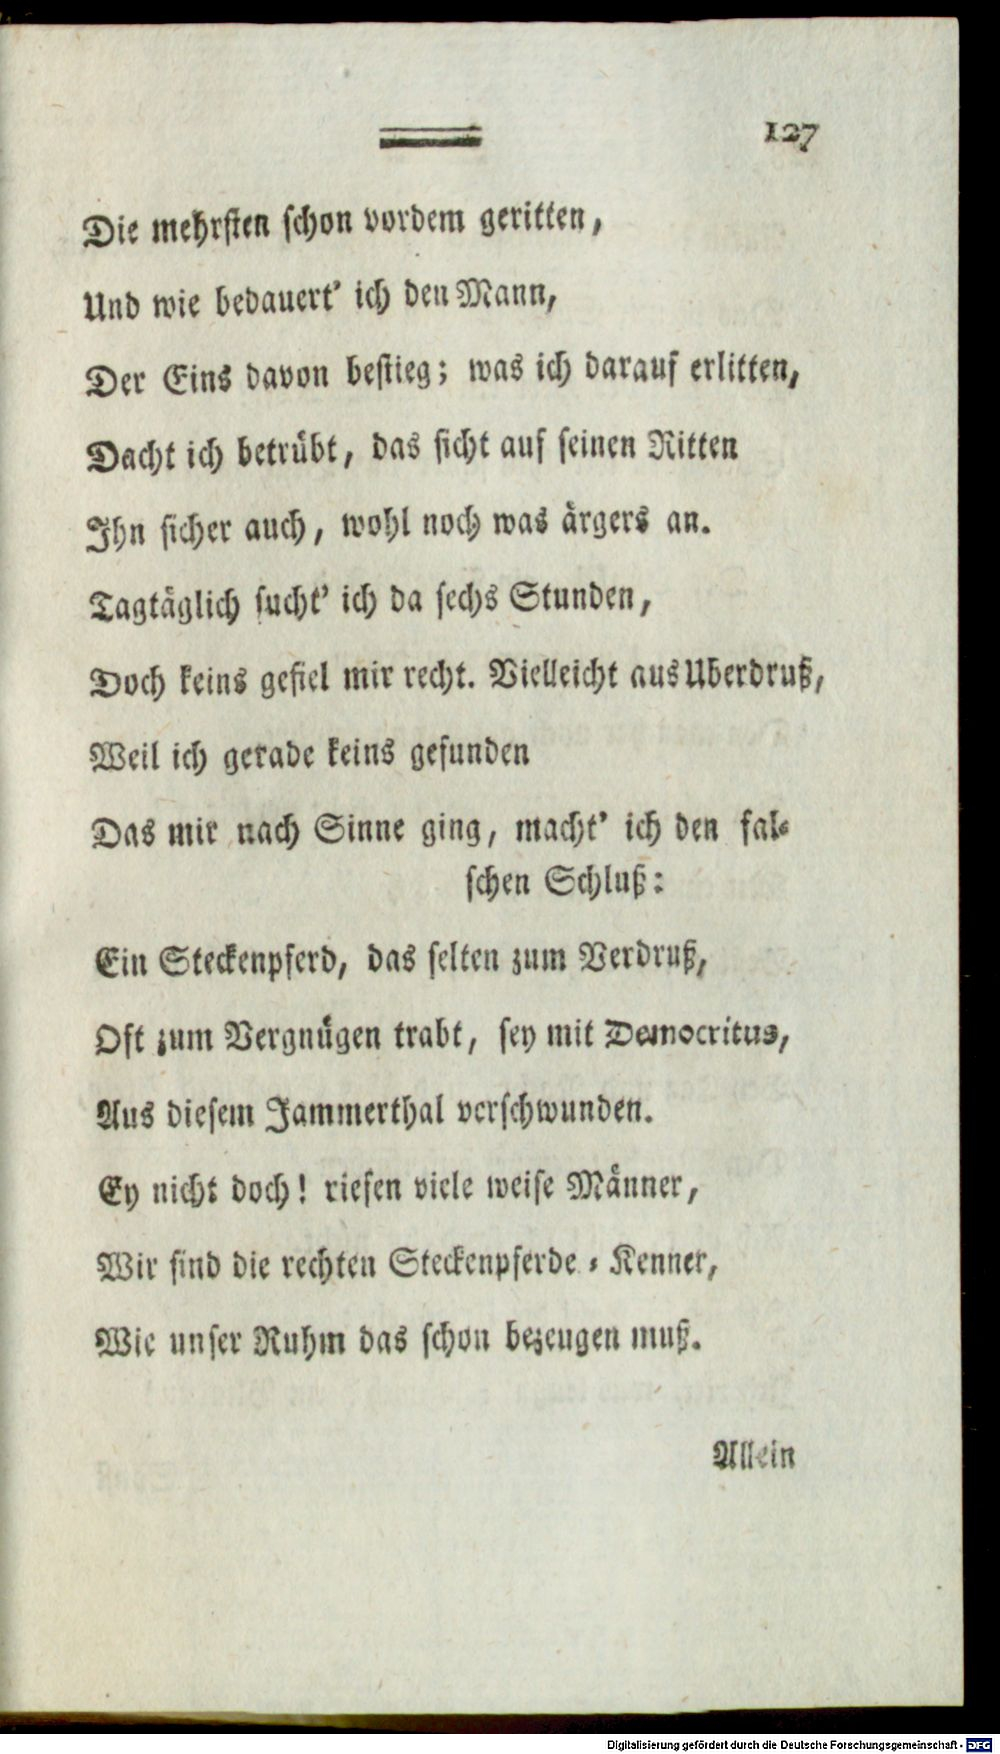 127
Die mehrsten schon vordem geritten,
Und wie bedauert' ich den Mann,
Der Eins davon bestieg; was ich darauf erlitten,
Dacht ich betrübt, das ficht auf seinen Ritten
Ihn sicher auch, wohl noch was ärgers an.
Tagtäglich sucht' ich da sechs Stunden,
Doch keins gefiel mir recht. Vielleicht aus Uberdruß,
Weil ich gerade keins gefunden
Das mir nach Sinne ging, macht' ich den fal-
schen Schluß:
Ein Steckenpferd, das selten zum Verdruß,
Oft zum Vergnügen trabt, sey mit Democritus,
Aus diesem Jammerthal verschwunden.
Ey nicht doch! riefen viele weise Männer,
Wir sind die rechten Steckenpferde-Kenner,
Wie unser Ruhm das schon bezeugen muß.
Allein
Digitalisierung gefördert durch die Deutsche Forschungsgemeinschaft - DFG